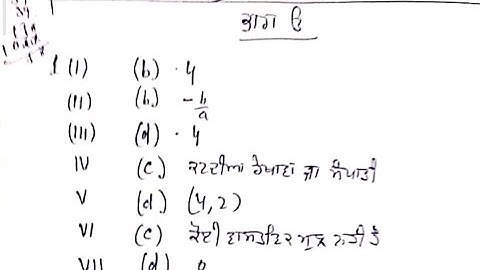 ਭਾਗ ੳ
1 (I) (b) . 4
(II) (b) -b/a
(III) (d) . 4
IV (c) ਕਟਦੀਆਂ ਰੇਖਾਵਾਂ ਜਾਂ ਸੰਪਾਤੀ
V (d) (4, 2)
VI (c) ਕੋਈ ਵਾਸਤਵਿਕ ਮੂਲ ਨਹੀਂ ਹੈ
VII (d)